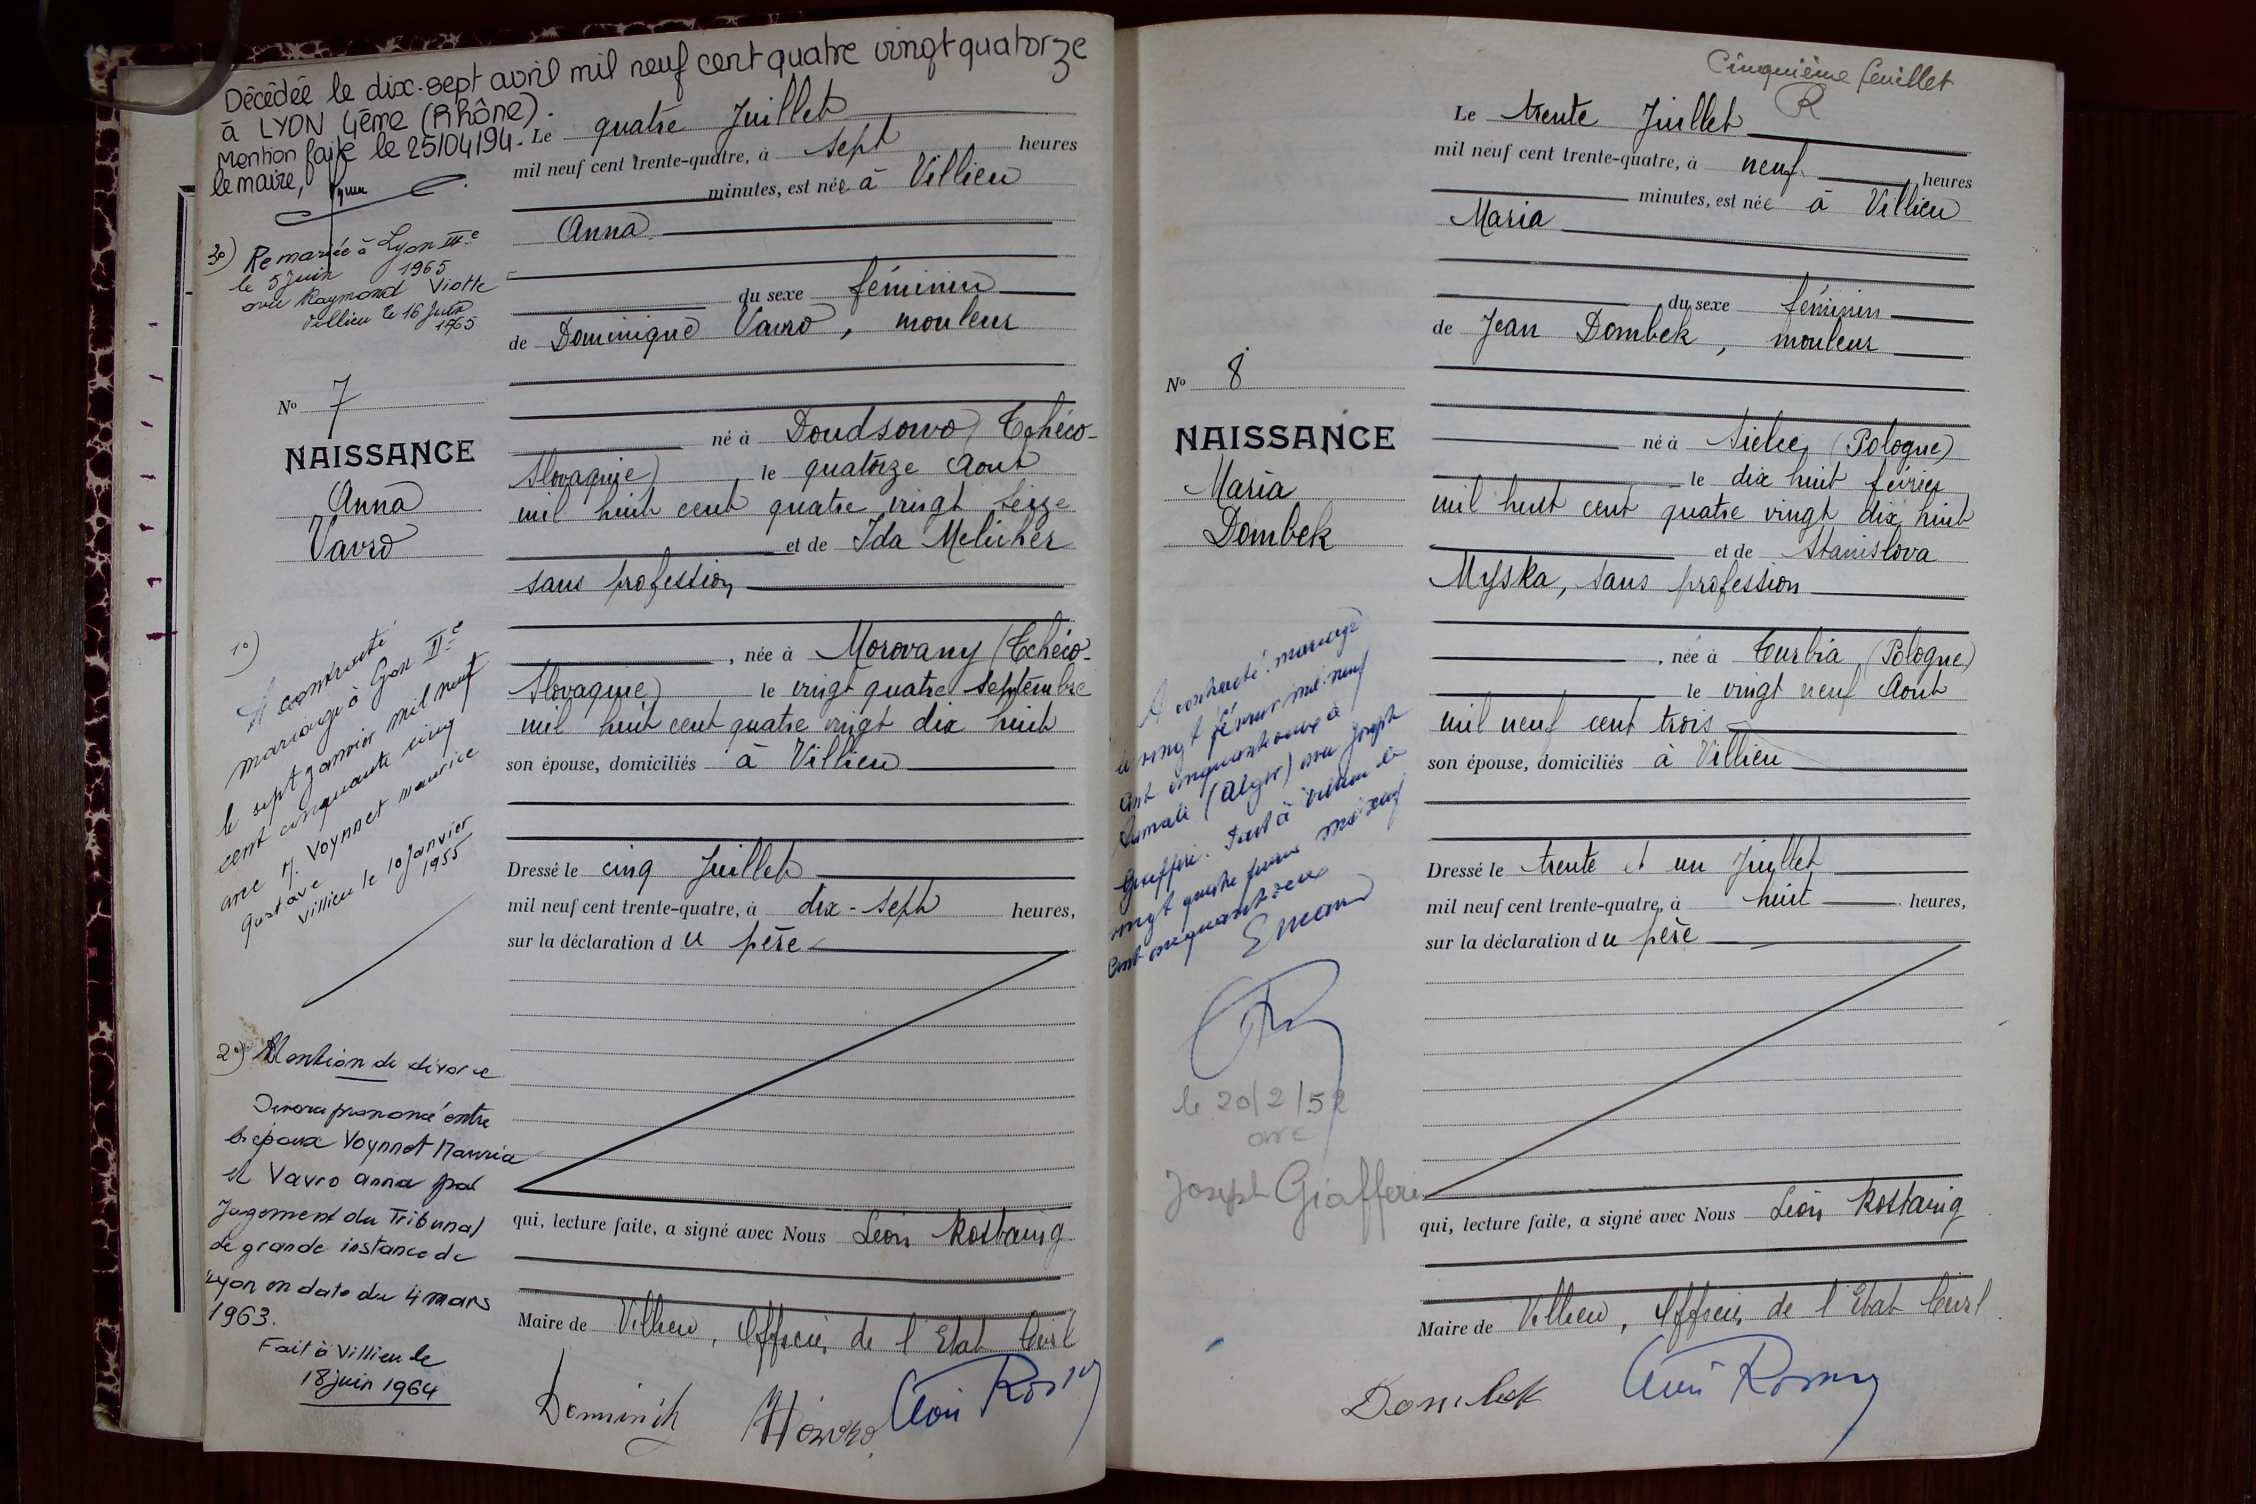 Décédée le dix-sept avril mil neuf cent quatre vingt quatorze
à LYON 4ème (Rhône).
Mention faite le 25/04/94.
le maire,
3º) Remariée à Lyon IIIe
le 5 Juin 1965
avec Raymond Viotte
Villieu le 16 Juin
1965
Nº 7
NAISSANCE
Anna
Vavro
1º)
A contracté
mariage à Lyon IIe
le sept janvier mil neuf
cent cinquante cinq
avec M. Voynnet Maurice
Gustave
Villieu le 10 Janvier
1955
2º) Mention de divorce
Divorce prononcé entre
les époux Voynnet Maurice
et Vavro Anna par
Jugement du Tribunal
de grande instance de
Lyon en date du 4 mars
1963.
Fait à Villieu le
18 juin 1964
Le quatre Juillet
mil neuf cent trente-quatre, à sept heures
minutes, est née à Villieu
Anna
du sexe féminin
de Dominique Vavro, mouleur
né à Doudsowo (Tchéco-
Slovaquie) le quatorze Aout
mil huit cent quatre vingt seize
et de Ida Melicher
sans profession
, née à Morovany (Tchéco-
Slovaquie) le vingt quatre septembre
mil huit cent quatre vingt dix huit
son épouse, domiciliés à Villieu
Dressé le cinq Juillet
mil neuf cent trente-quatre, à dix-sept heures,
sur la déclaration du père
qui, lecture faite, a signé avec Nous Léon Rostaing
Maire de Villieu, Officier de l'Etat Civil
Dominik
Cinquième feuillet
Nº 8
NAISSANCE
Maria
Dombek
A contracté mariage
le vingt février mil neuf
cent cinquante deux à
(Alger) avec Joseph
Giafferi. Fait à Villieu le
vingt quatre mil neuf
cent cinquante deux
le 20/2/52
avec
Joseph Giafferi
Le trente Juillet
mil neuf cent trente-quatre, à neuf heures
minutes, est née à Villieu
Maria
du sexe féminin
de Jean Dombek, mouleur
né à Sielec (Pologne)
le dix huit février
mil huit cent quatre vingt dix huit
et de Stanislova
Myska, sans profession
, née à Turbia (Pologne)
le vingt neuf Aout
mil neuf cent trois
son épouse, domiciliés à Villieu
Dressé le trente et un Juillet
mil neuf cent trente-quatre, à huit heures,
sur la déclaration du père
qui, lecture faite, a signé avec Nous Léon Rostaing
Maire de Villieu, Officier de l'Etat Civil
Dombek